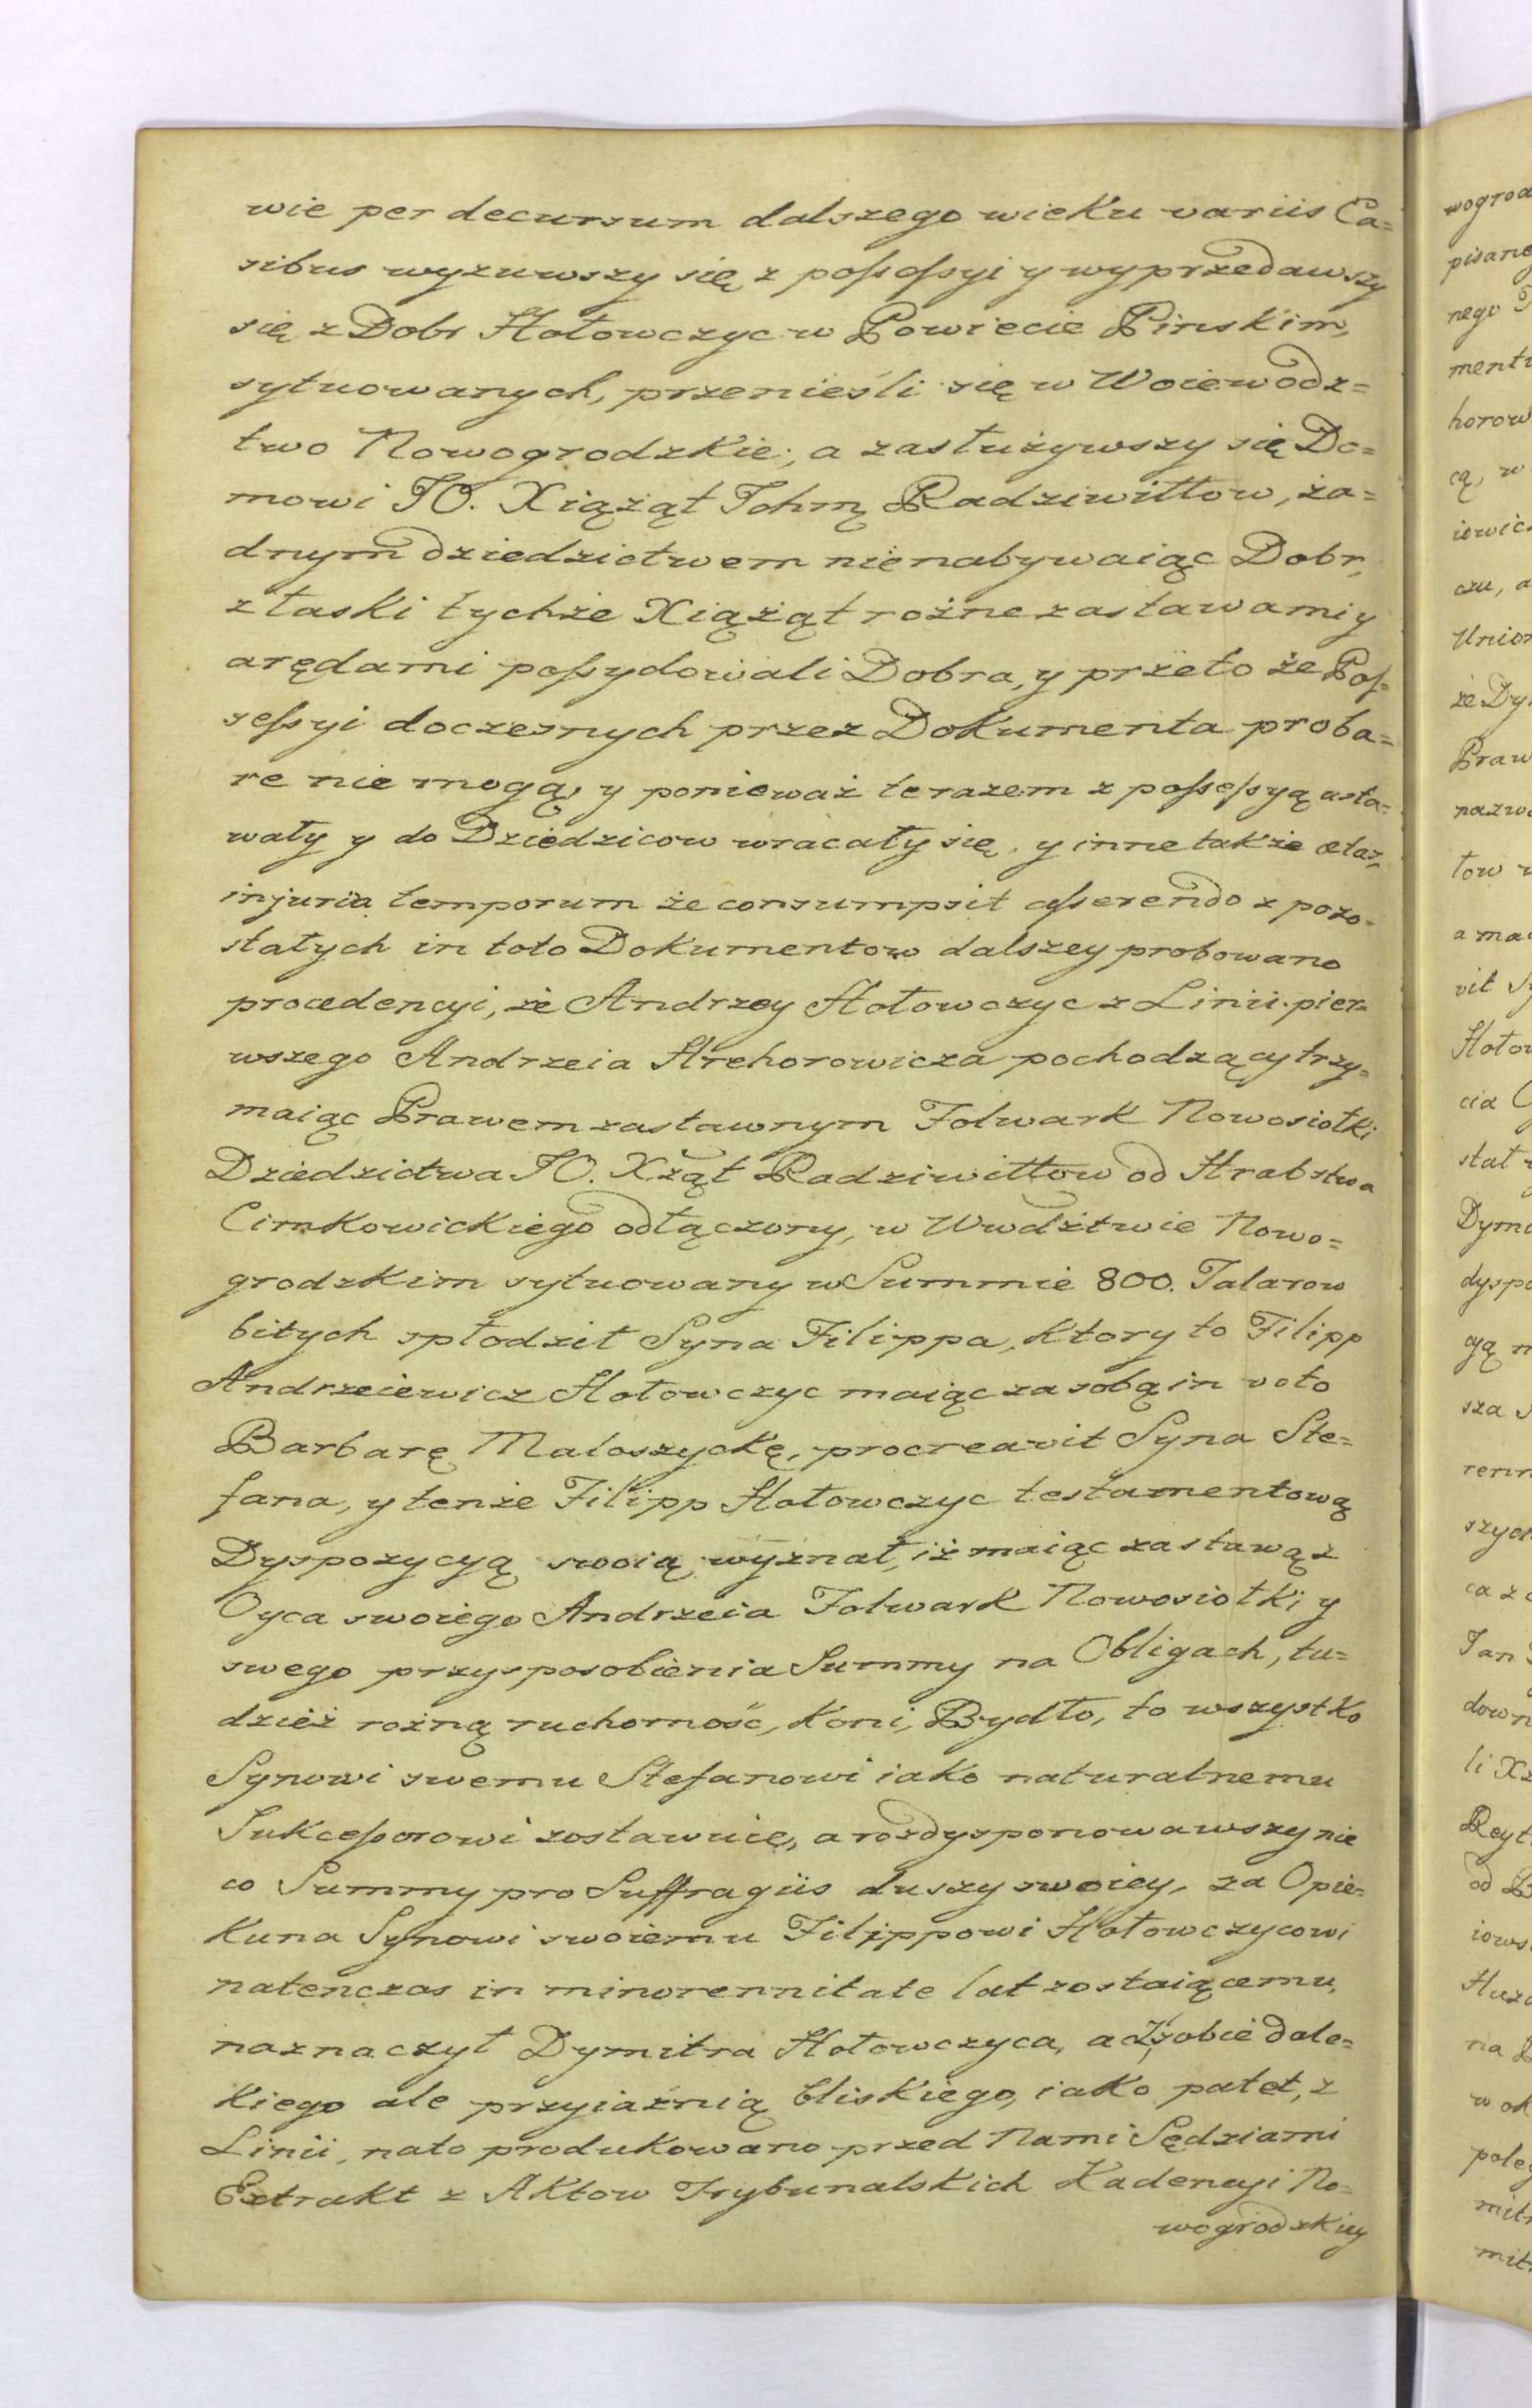 wie per decursum dalszego wieku variis Ca=
sibus wyzuwszy się z possessyi y wyprzedawszy
się z Dobr Hołowczyc w Powiecie Pinskim,
sytuowanych, przenieśli się w Woiewodz=
two Nowogrodzkie; a zasłużywszy się Do=
mowi JO. Xiążąt Ichmę Radziwiłłow, ża=
dnym dziedzictwem nienabywaiąc Dobr,
z łaski tychże Xiążąt rożne zastawami y
arędami possydowali Dobra, y przeto że Pos=
sessyi doczesnych przez Dokumenta proba=
re nie mogą, y ponieważ te razem z possessyą usta=
wały y do Dziedzicow wracały się, y inne także ætas,
injuria temporum że consumpsit asserendo z pozo=
stałych in toto Dokumentow dalszey probowano
procedencyi, że Andrzey Hołowczyc z Linii pier=
wszego Andrzeia Hrehorowicza pochodzący trzy=
maiąc Prawem zastawnym Folwark Nowosiołki
Dziedzictwa JO. Xżąt Radziwiłłow od Hrabstwa
Cimkowickiego odłączony, w Wwdztwie Nowo=
grodzkim sytuowany w Summie 800. Talarow
bitych spłodził Syna Filippa, ktory to Filipp
Andrzeiewicz Hołowczyc maiąc za sobą in voto
Barbarę Małoszyckę, procreavit Syna Ste=
fana, y tenże Filipp Hołowczyc testamentową
Dyspozycyą swoią wyznał, iż maiąc zastawą z
Oyca swoiego Andrzeia Folwark Nowosiołki y
swego przysposobienia Summy na Obligach, tu=
dzież rożną ruchomość, Koni, Bydło, to wszystko
Synowi swemu Stefanowi iako naturalnemu
Sukcessorowi zostawuie, a rozdysponowawszy nie
co Summy pro Suffragiis duszy swoiey, za Opie=
kuna Synowi swoiemu Filippowi Hołowczycowi
natenczas in minorennitate lat zostaiącemu,
naznaczył Dymitra Hołowczyca, acz sobie dale=
kiego ale przyiaźnią bliskiego, iako patet, z
Linii, nato produkowano przed Nami Sędziami
Extrakt z Aktow Trybunalskich Kadencyi No=
wogrodzkiey
wogrod
pisane
nego
mentu
horow
cą, w
iewic
czu, a
Union
że Dy
Praw
nazwa
tow
a ma
vit
Hoło
cia
stat
Dym
dyspo
cyą n
sza
renn
szych
ca z
Jan
down
li Xż
Reyt
od
iows
na
w ok
poleg
mit
mit